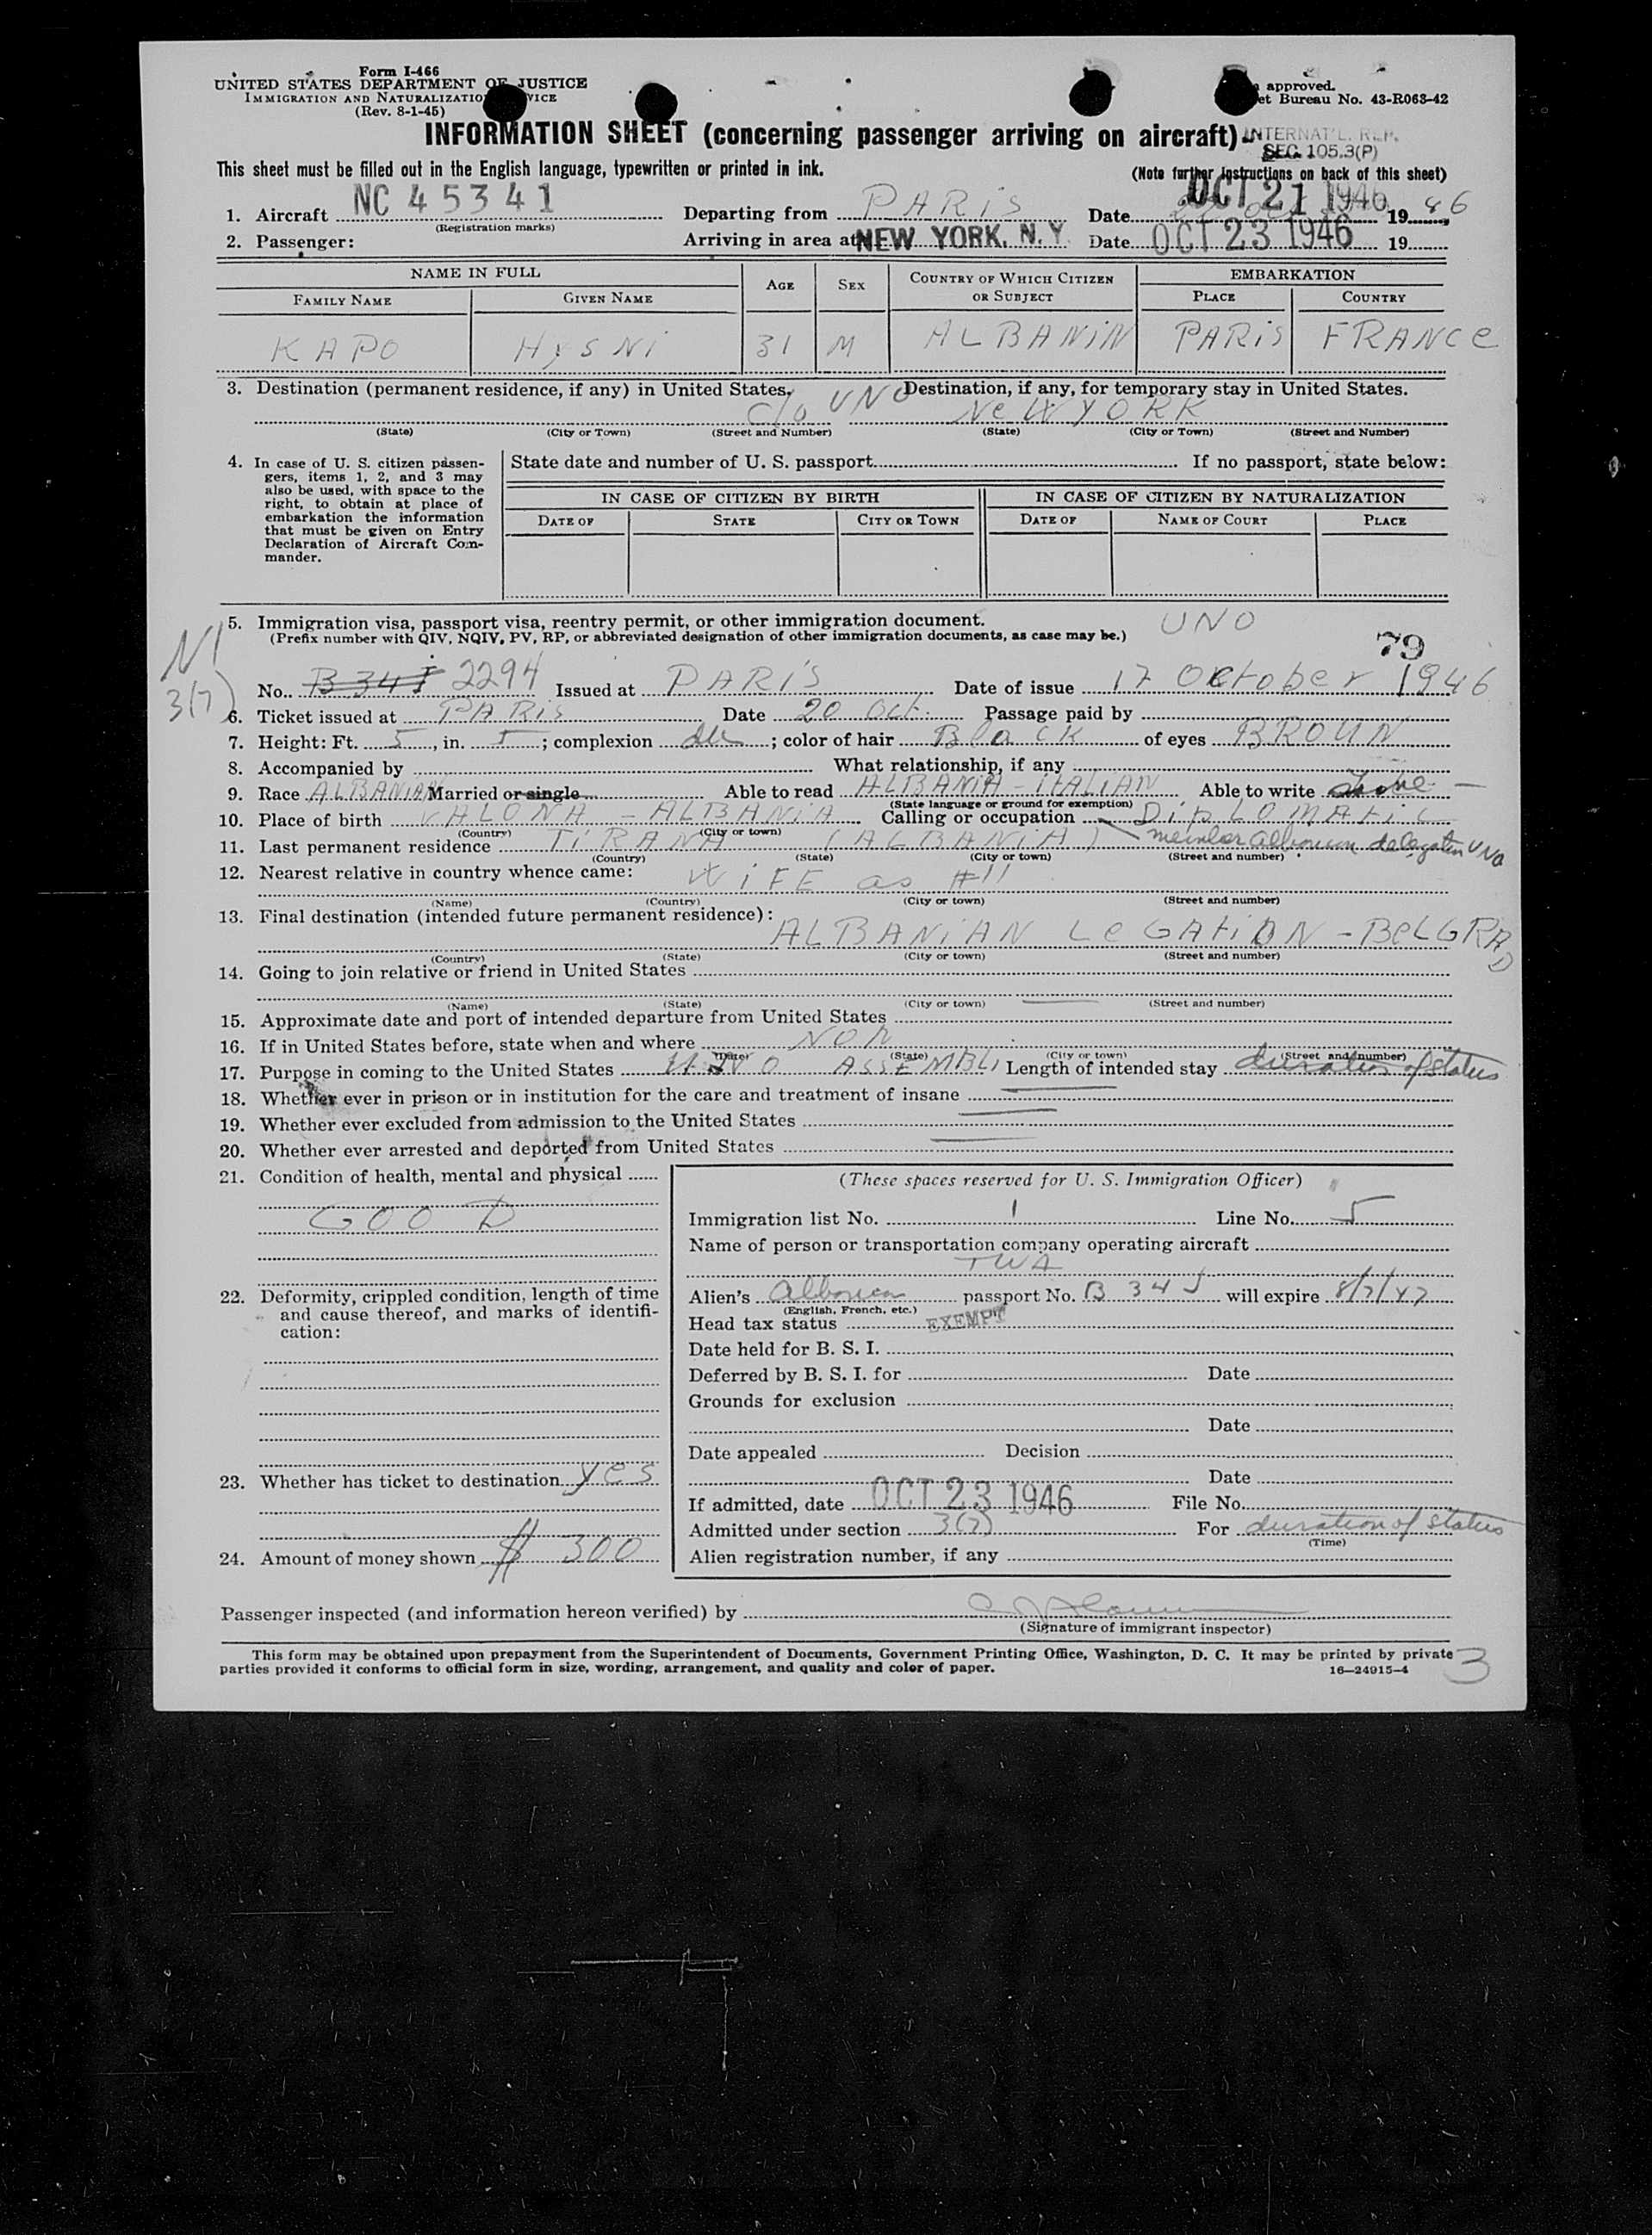 Form I-466
UNITED STATES DEPARTMENT OF JUSTICE
IMMIGRATION AND NATURALIZATION VICE
(Rev. 8-1-45)
approved.
et Bureau No. 43-R063-42
INFORMATION SHEET (concerning passenger arriving on aircraft)
INTERNAT'L. REP.
SEC. 105.3(P)
This sheet must be filled out in the English language, typewritten or printed in ink.
(Note further instructions on back of this sheet)
1. Aircraft NC 45341 Departing from PARiS Date OCT 21 1946 1946
(Registration marks)
2. Passenger: Arriving in area at NEW YORK, N.Y. Date OCT 23 1946 19
NAME IN FULL AGE SEX COUNTRY OF WHICH CITIZEN OR SUBJECT EMBARKATION
FAMILY NAME GIVEN NAME PLACE COUNTRY
KAPO HYSNi 31 M ALBANiN PARiS FRANCe
3. Destination (permanent residence, if any) in United States. Destination, if any, for temporary stay in United States.
c/o UNO NeW YORK
(State) (City or Town) (Street and Number) (State) (City or Town) (Street and Number)
4. In case of U. S. citizen passengers, items 1, 2, and 3 may also be used, with space to the right, to obtain at place of embarkation the information that must be given on Entry Declaration of Aircraft Commander.
State date and number of U. S. passport If no passport, state below:
IN CASE OF CITIZEN BY BIRTH IN CASE OF CITIZEN BY NATURALIZATION
DATE OF STATE CITY OR TOWN DATE OF NAME OF COURT PLACE
5. Immigration visa, passport visa, reentry permit, or other immigration document. UNO
(Prefix number with QIV, NQIV, PV, RP, or abbreviated designation of other immigration documents, as case may be.)
79
NI
3(7)
No. B 34 J 2294 Issued at PARiS Date of issue 17 October 1946
6. Ticket issued at PARiS Date 20 Oct. Passage paid by
7. Height: Ft. 5, in. 5; complexion dk; color of hair BlaCK of eyes BROUN
8. Accompanied by What relationship, if any
9. Race ALBANiAN Married or single Able to read ALBANiA - iTALiAN Able to write
(State language or ground for exemption)
10. Place of birth VALONA - ALBANiA Calling or occupation DipLOMAtiC
(Country) (City or town)
member Albanian delegation UNO
11. Last permanent residence TiRANA (ALBANiA)
(Country) (State) (City or town) (Street and number)
12. Nearest relative in country whence came: WiFE as #11
(Name) (Country) (City or town) (Street and number)
13. Final destination (intended future permanent residence):
ALBANiAN LeGAtiON - BeLGRAD
(Country) (State) (City or town) (Street and number)
14. Going to join relative or friend in United States
(Name) (State) (City or town) (Street and number)
15. Approximate date and port of intended departure from United States
16. If in United States before, state when and where NON
(Date) (State) (City or town) (Street and number)
17. Purpose in coming to the United States UNO ASSEMBLi Length of intended stay duration of status
18. Whether ever in prison or in institution for the care and treatment of insane
19. Whether ever excluded from admission to the United States
20. Whether ever arrested and deported from United States
21. Condition of health, mental and physical
GOOD
22. Deformity, crippled condition, length of time and cause thereof, and marks of identification:
23. Whether has ticket to destination yes
24. Amount of money shown $ 300
(These spaces reserved for U. S. Immigration Officer)
Immigration list No. 1 Line No. 5
Name of person or transportation company operating aircraft
TWA
Alien's Albanian passport No. B 34 J will expire 8/7/47
(English, French, etc.)
Head tax status EXEMPT
Date held for B. S. I.
Deferred by B. S. I. for Date
Grounds for exclusion
Date
Date appealed Decision
Date
If admitted, date OCT 23 1946 File No.
Admitted under section 3(7) For duration of status
(Time)
Alien registration number, if any
Passenger inspected (and information hereon verified) by
(Signature of immigrant inspector)
This form may be obtained upon prepayment from the Superintendent of Documents, Government Printing Office, Washington, D. C. It may be printed by private
parties provided it conforms to official form in size, wording, arrangement, and quality and color of paper.
16—24915-4
3